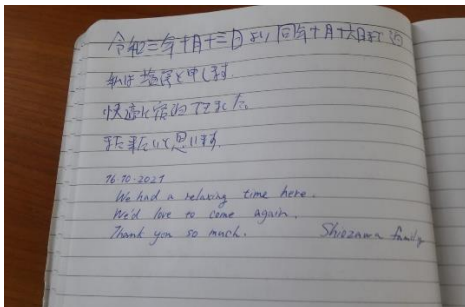 令和三年十月十三日より同年十月十六日まで泊
私は塩澤と申します.
快適に宿泊できました
また来たいと思います.
16-10-2021
We had a relaxing time here.
We'd love to come again.
Thank you so much. Shiozawa family